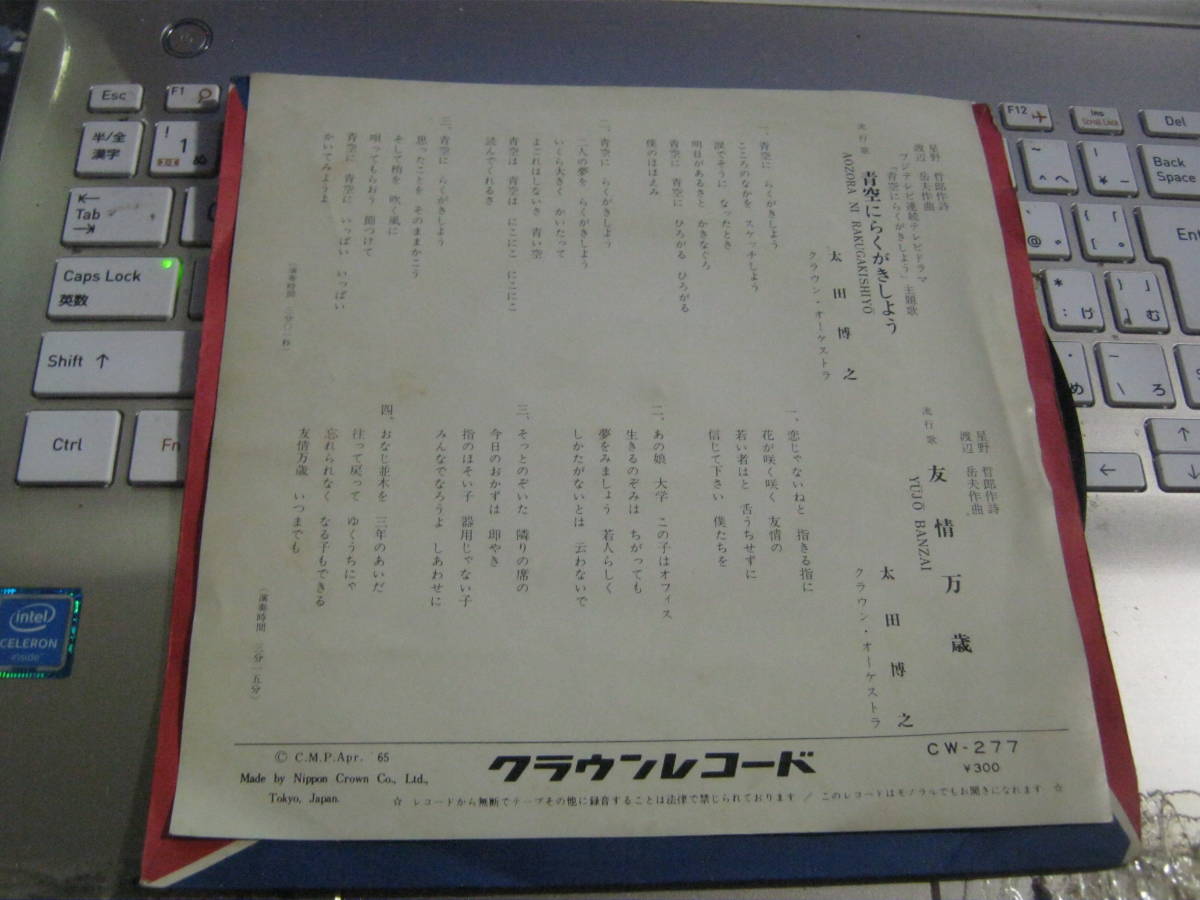 星野 哲郎作詩
渡辺 岳夫作曲
フジテレビ連続テレビドラマ
「青空にらくがきしよう」主題歌
流行歌
青空にらくがきしよう
AOZORA NI RAKUGAKISHIYŌ
太田博之
クラウン・オーケストラ
一、青空に らくがきしよう
こころのなかを スケッチしよう
涙でそうに なったとき
明日があるさと かきなぐろ
青空に 青空に ひろがる ひろがる
僕のほほえみ
二、青空に らくがきしよう
二人の夢を らくがきしよう
いくら大きく かいたって
よごれはしないさ 青い空
青空は 青空は にこにこ にこにこ
読んでくれるさ
三、青空に らくがきしよう
思ったことを そのままかこう
そして梢を 吹く風に
唄ってもらおう 節つけて
青空に 青空に いっぱい いっぱい
かいてみようよ
(演奏時間 三分〇二秒)
星野 哲郎作詩
渡辺 岳夫作曲
流行歌
友情万歳
YUJŌ BANZAI
太田博之
クラウン・オーケストラ
一、恋じゃないねと 指きる指に
花が咲く咲く 友情の
若い者はと 舌うちせずに
信じて下さい 僕たちを
二、あの娘 大学 この子はオフィス
生きるのぞみは ちがっても
夢をみましょう 若人らしく
しかたがないとは 云わないで
三、そっとのぞいた 隣りの席の
今日のおかずは 卵やき
指のほそい子 器用じゃない子
みんなでなろうよ しあわせに
四、おなじ並木を 三年のあいだ
往って戻って ゆくうちにゃ
忘れられなく なる子もできる
友情万歳 いつまでも
(演奏時間 三分一五分)
Ⓒ C.M.P.Apr. '65
Made by Nippon Crown Co., Ltd.,
Tokyo, Japan.
クラウンレコード
CW-277
¥300
☆ レコードから無断でテープその他に録音することは法律で禁じられております / このレコードはモノラルでもお聞きになれます ☆
Esc
F1
半/全
漢字
!
1
ぬ
Tab
Caps Lock
英数
Shift ↑
Ctrl
Fn
F12
Ins
Scroll Lock
Del
Back
Space
Ent
intel
CELERON
inside